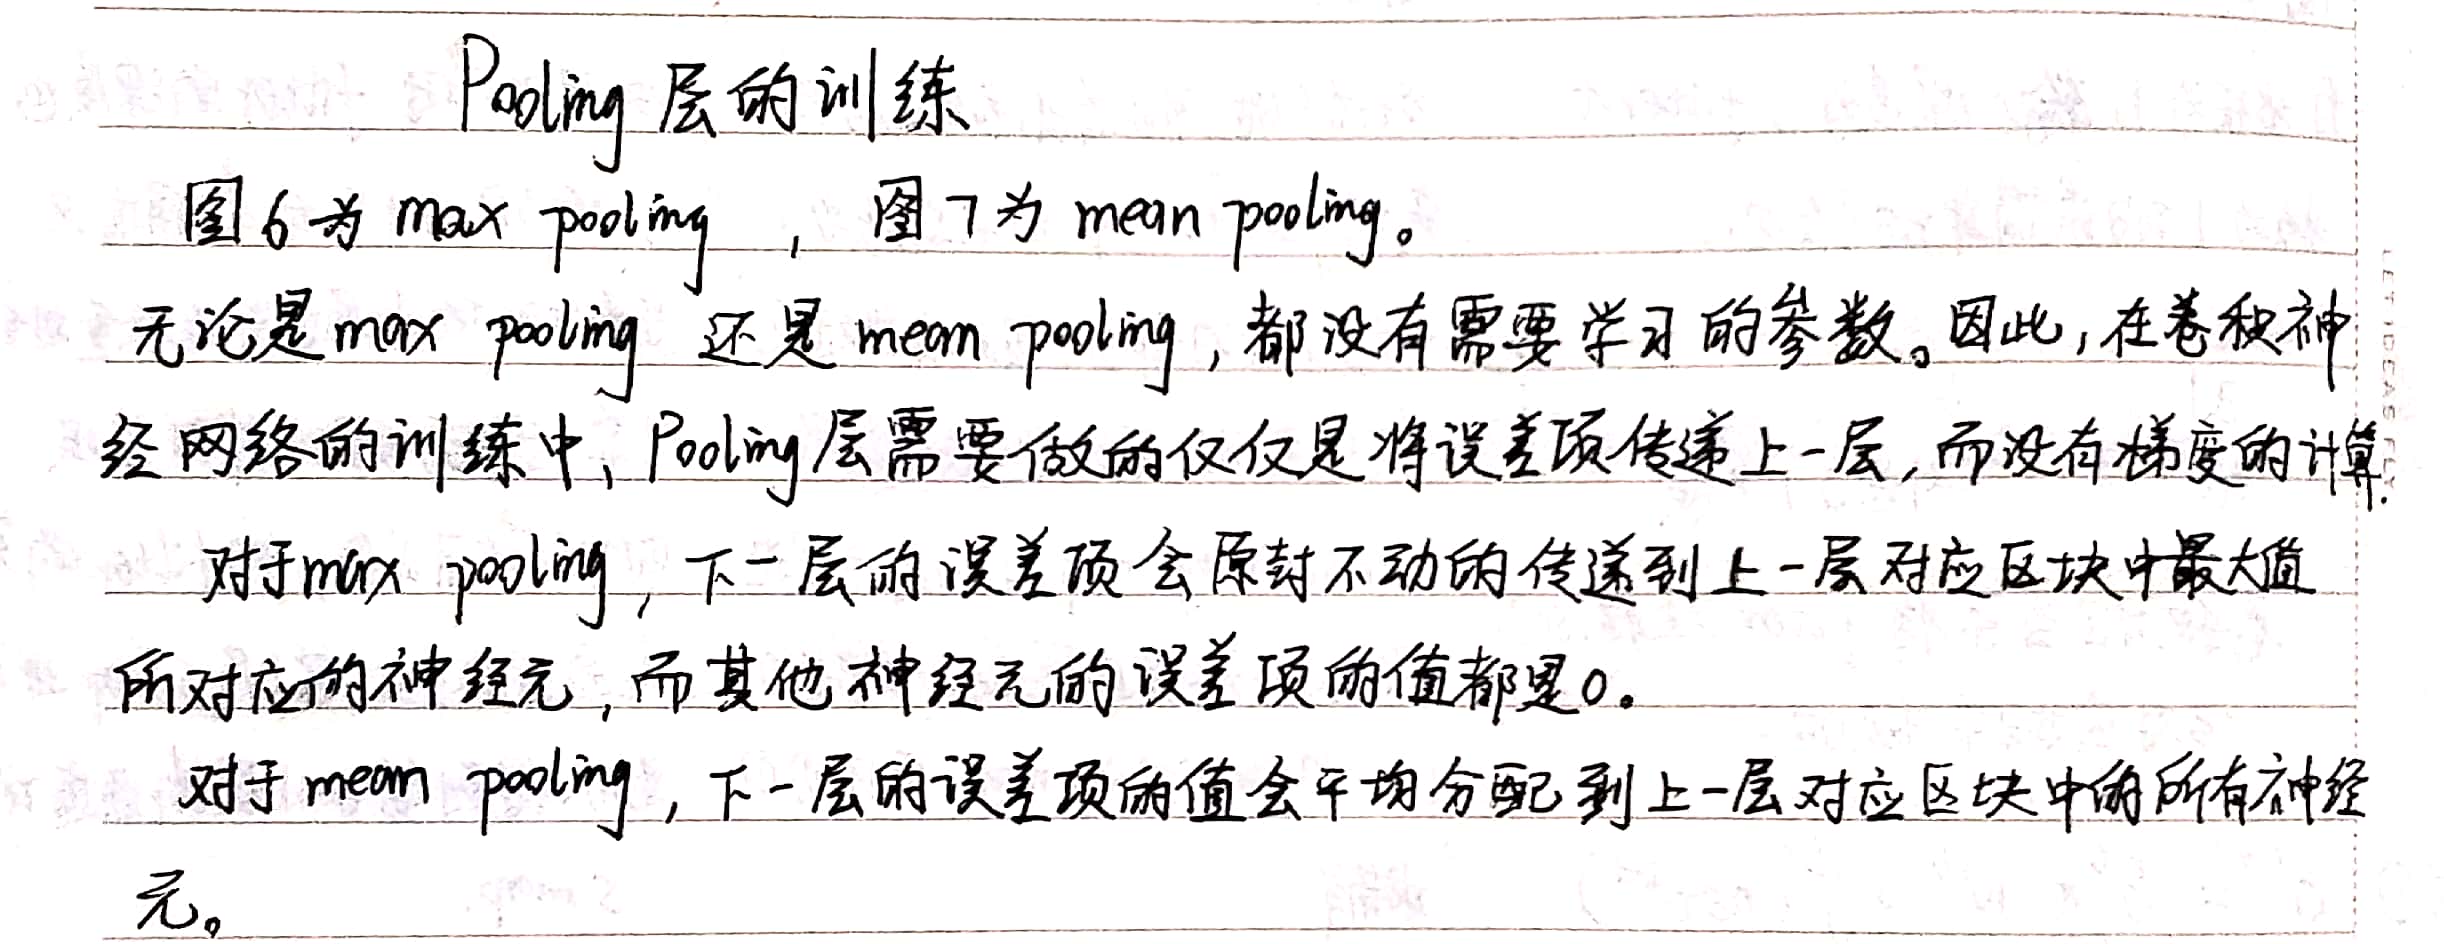 Pooling层的训练
图6为 max pooling , 图7为 mean pooling。
无论是max pooling 还是mean pooling,都没有需要学习的参数。因此,在卷积神
经网络的训练中, Pooling层需要做的仅仅是将误差项传递上一层,而没有梯度的计算.
对于max pooling,下一层的误差项会原封不动的传递到上一层对应区块中最大值
所对应的神经元,而其他神经元的误差项的值都是0。
对于mean pooling,下一层的误差项的值会平均分配到上一层对应区块中的所有神经
元。